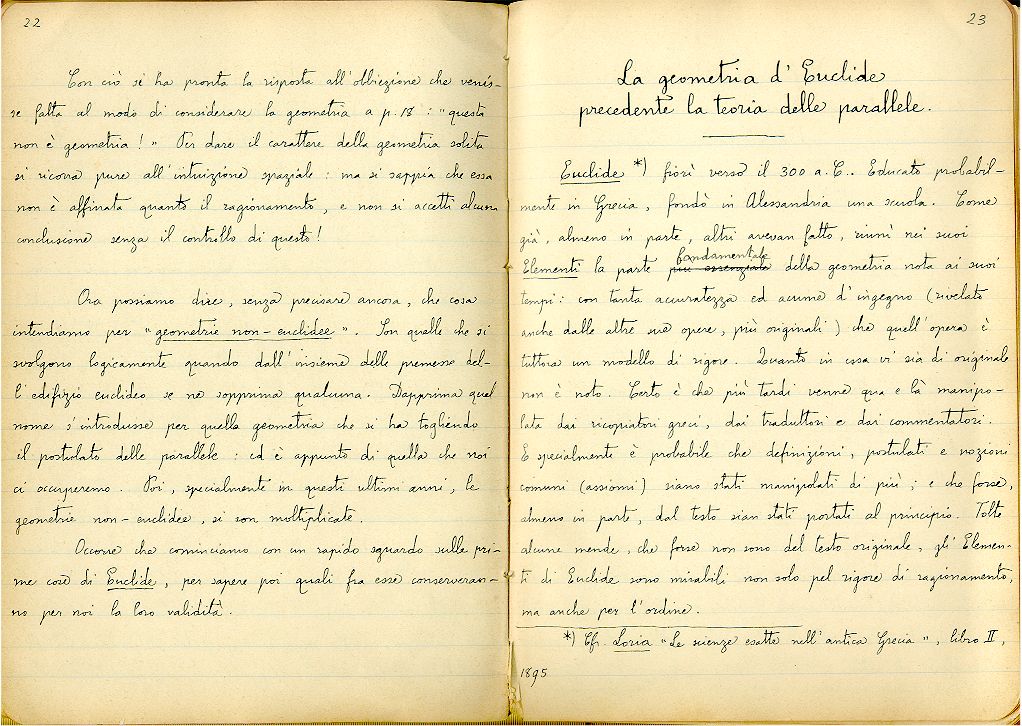 22
Con ciò si ha pronta la risposta all'obbiezione che venis-
se fatta al modo di considerare la geometria a p. 18 : "questa
non è geometria ! " Per dare il carattere della geometria solita
si ricorra pure all'intuizione spaziale : ma si sappia che essa
non è affinata quanto il ragionamento, e non si accetti alcuna
conclusione senza il controllo di questo !
Ora possiamo dire, senza precisare ancora, che cosa
intendiamo per "geometrie non-euclidee". Son quelle che si
svolgono logicamente quando dall'insieme delle premesse del-
l'edifizio euclideo se ne sopprima qualcuna. Dapprima quel
nome s'introdusse per quella geometria che si ha togliendo
il postulato delle parallele : ed è appunto di quella che noi
ci occuperemo. Poi, specialmente in questi ultimi anni, le
geometrie non-euclidee, si son moltiplicate.
Occorre che cominciamo con un rapido sguardo sulle pri-
me cose di Euclide, per sapere poi quali fra esse conserveran-
no per noi la loro validità.
23
La geometria d'Euclide
precedente la teoria delle parallele.
Euclide *) fiorì verso il 300 a. C.. Educato probabil-
mente in Grecia, fondò in Alessandria una scuola. Come
già, almeno in parte, altri avevan fatto, riunì nei suoi
fondamentale
Elementi la parte più essenziale della geometria nota ai suoi
tempi : con tanta accuratezza ed acume d'ingegno (rivelato
anche dalle altre sue opere, più originali) che quell'opera è
tuttora un modello di rigore. Quanto in essa vi sia di originale
non è noto. Certo è che più tardi venne qua e là manipo-
lata dai ricopiatori greci, dai traduttori e dai commentatori.
E specialmente è probabile che definizioni, postulati e nozioni
comuni (assiomi) siano stati manipolati di più ; e che forse,
almeno in parte, dal testo sian stati portati al principio. Tolte
alcune mende, che forse non sono del testo originale, gli Elemen-
ti di Euclide sono mirabili non solo pel rigore di ragionamento,
ma anche per l'ordine.
*) Cfr. Loria "Le scienze esatte nell'antica Grecia", libro II,
1895